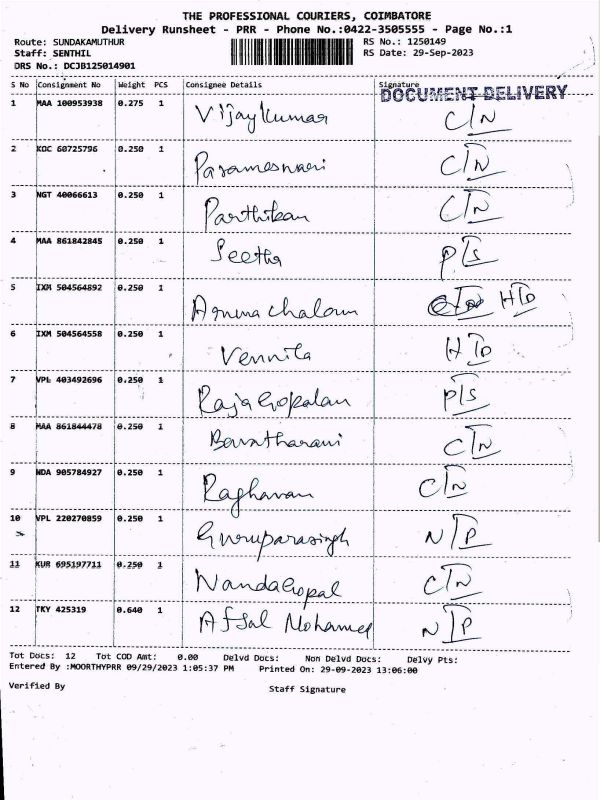 THE PROFESSIONAL COURIERS, COIMBATORE
Delivery Runsheet - PRR - Phone No.:0422-3505555 - Page No.:1
Route: SUNDAKAMUTHUR RS No.: 1250149
Staff: SENTHIL RS Date: 29-Sep-2023
DRS No.: DCJB125014901
S No Consignment No Weight PCS Consignee Details Signature
DOCUMENT DELIVERY
1 MAA 100953938 0.275 1 Vijaykumar C/N
2 KOC 60725796 0.250 1 Parameswari C/N
3 NGT 40066613 0.250 1 Parthiban C/N
4 MAA 861842845 0.250 1 Seetha P/S
5 IXM 504564892 0.250 1 Arunachalam H/D
6 IXM 504564558 0.250 1 Vennila H/D
7 VPL 403492696 0.250 1 Rajagopalan P/S
8 MAA 861844478 0.250 1 Baratharani C/N
9 NDA 905784927 0.250 1 Raghavan C/N
10 VPL 220270859 0.250 1 Guruparasingh N/P
11 KUR 695197711 0.250 1 NandaGopal C/N
12 TKY 425319 0.640 1 Afsal Mohamed N/P
Tot Docs: 12 Tot COD Amt: 0.00 Delvd Docs: Non Delvd Docs: Delvy Pts:
Entered By :MOORTHYPRR 09/29/2023 1:05:37 PM Printed On: 29-09-2023 13:06:00
Verified By Staff Signature